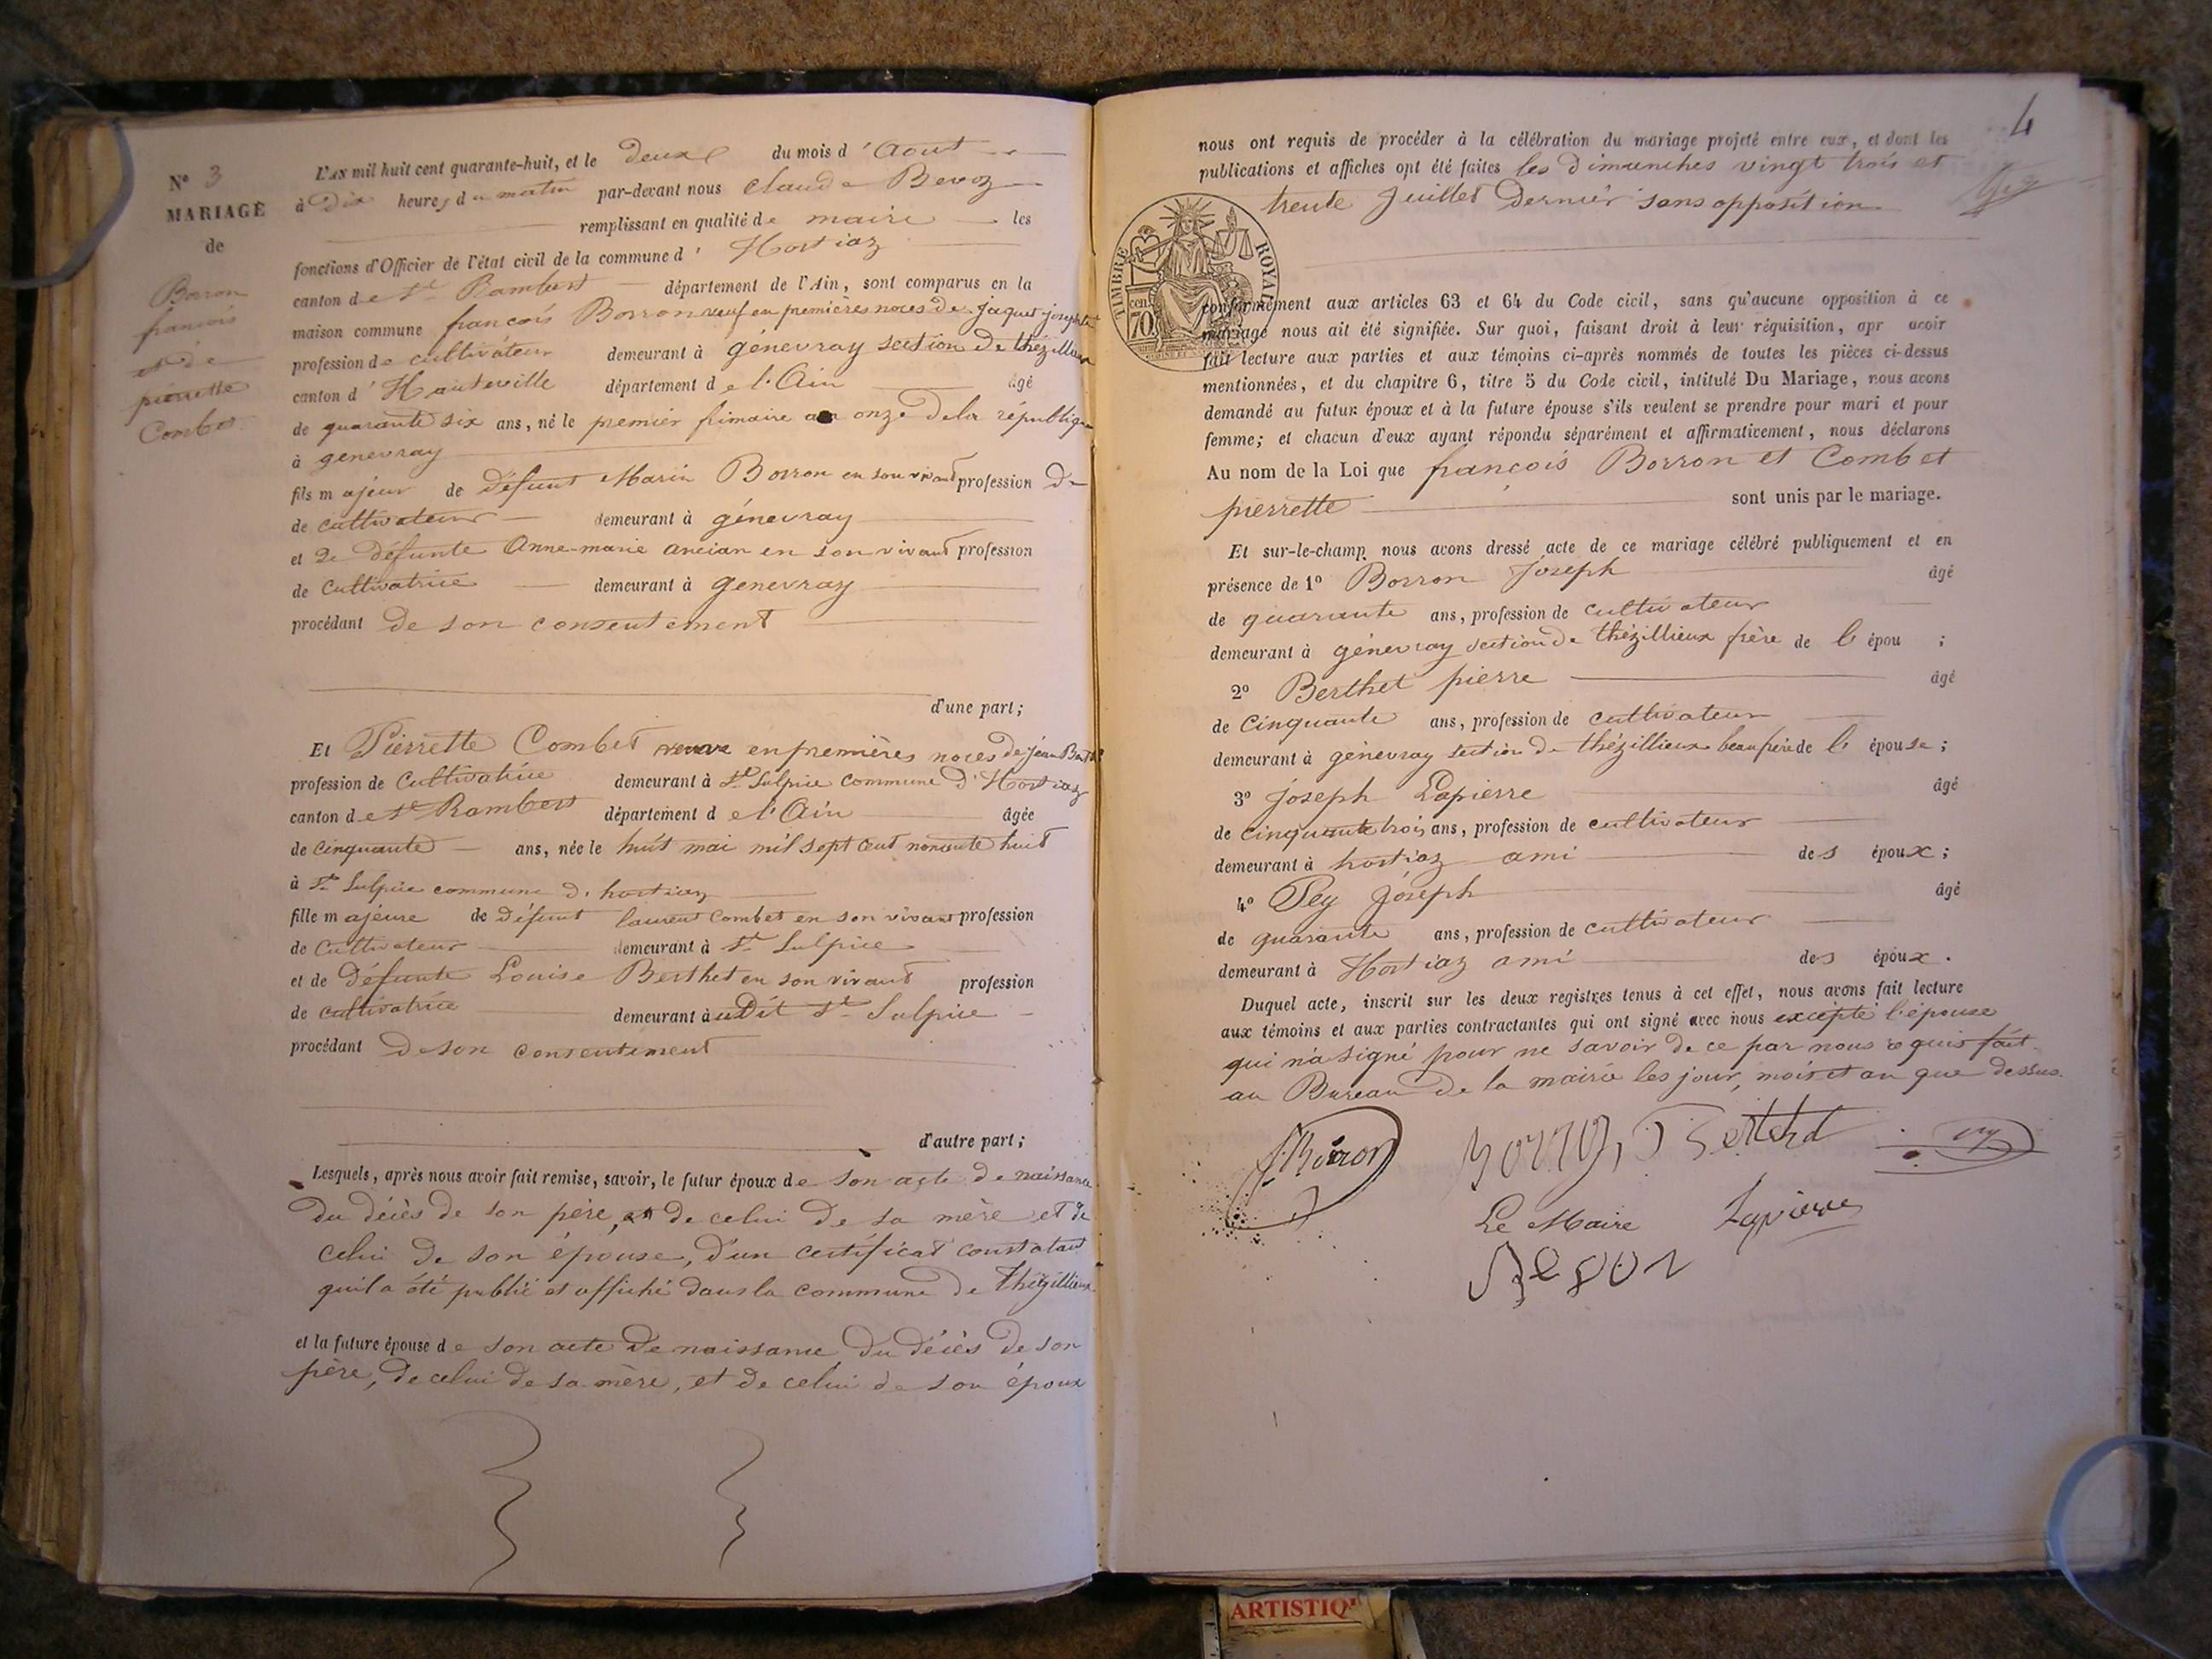 N° 3
MARIAGE
de
Borron
françois
et de
pierrette
Combet
L'AN mil huit cent quarante-huit, et le deux du mois d'Aout
à dix heures du matin par-devant nous Claude Bevoz
remplissant en qualité de maire les
fonctions d'Officier de l'état civil de la commune d'Hostiaz
canton de St Rambert département de l'Ain, sont comparus en la
maison commune françois Borron veuf en premières noces de jaquet josephte
profession de cultivateur demeurant à génevray section de thézillieux
canton d'Hauteville département de l'Ain âgé
de quarante six ans, né le premier frimaire an onze de la république
à genevray
fils majeur de défunt Marin Borron en son vivant profession de
de cultivateur demeurant à génevray
et de défunte Anne-marie ancian en son vivant profession
de cultivatrice demeurant à genevray
procédant de son consentement
d'une part;
Et Pierrette Combet veuve en premières noces de jean
profession de cultivatrice demeurant à St Sulpice commune d'Hostiaz
canton de St Rambert département de l'Ain âgée
de cinquante ans, née le huit mai mil sept cent nonante huit
à St Sulpice commune d'hostiaz
fille majeure de défunt laurent Combet en son vivant profession
de cultivateur demeurant à St Sulpice
et de défunte Louise Berthet en son vivant profession
de cultivatrice demeurant à udit St Sulpice
procédant de son consentement
d'autre part;
Lesquels, après nous avoir fait remise, savoir, le futur époux de son acte de naissance
du décès de son père, et de celui de sa mère et de
celui de son épouse, d'un certificat constatant
qu'il a été publié et affiché dans la commune de thézillieux
et la future épouse de son acte de naissance du décès de son
père, de celui de sa mère, et de celui de son époux
4
nous ont requis de procéder à la célébration du mariage projeté entre eux, et dont les
publications et affiches ont été faites les dimanches vingt trois et
trente juillet dernier sans opposition
TIMBRE ROYAL
cen. 70
conformément aux articles 63 et 64 du Code civil, sans qu'aucune opposition à ce
mariage nous ait été signifiée. Sur quoi, faisant droit à leur réquisition, apr avoir
fait lecture aux parties et aux témoins ci-après nommés de toutes les pièces ci-dessus
mentionnées, et du chapitre 6, titre 5 du Code civil, intitulé Du Mariage, nous avons
demandé au futur époux et à la future épouse s'ils veulent se prendre pour mari et pour
femme; et chacun d'eux ayant répondu séparément et affirmativement, nous déclarons
Au nom de la Loi que françois Borron et Combet
pierrette sont unis par le mariage.
Et sur-le-champ nous avons dressé acte de ce mariage célébré publiquement et en
présence de 1° Borron Joseph âgé
de quarante ans, profession de cultivateur
demeurant à génevray section de thézillieux frère de l'épou ;
2° Berthet pierre âgé
de cinquante ans, profession de cultivateur
demeurant à génevray section de thézillieux beaufrère de l'épouse ;
3° Joseph Lapierre âgé
de cinquante trois ans, profession de cultivateur
demeurant à hostiaz ami des époux ;
4° Pey Joseph âgé
de quarante ans, profession de cultivateur
demeurant à Hostiaz ami des époux .
Duquel acte, inscrit sur les deux registres tenus à cet effet, nous avons fait lecture
aux témoins et aux parties contractantes qui ont signé avec nous excepté l'épouse
qui n'a signé pour ne savoir de ce par nous requis fait
au Bureau de la mairie les jour, mois et an que dessus.
Borron
Le Maire
Lapierre
ARTISTIQ